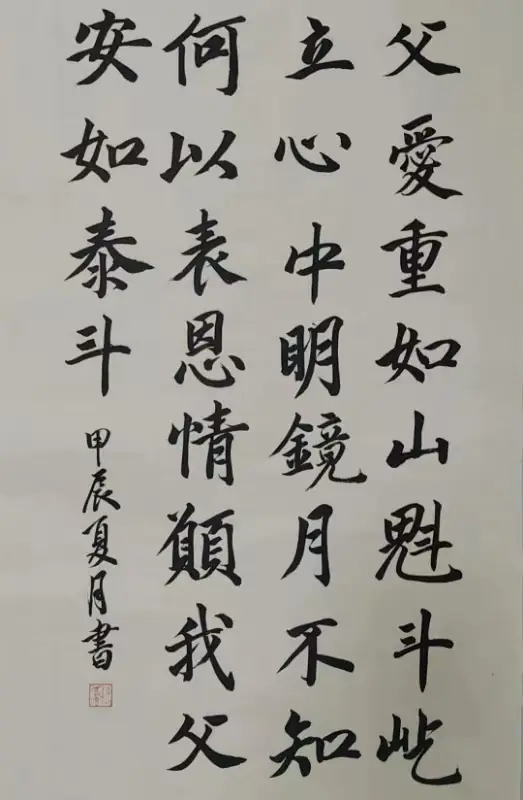 父愛重如山魁斗屹
立心中明鏡月不知
何以表恩情願我父
安如泰斗
甲辰夏月書